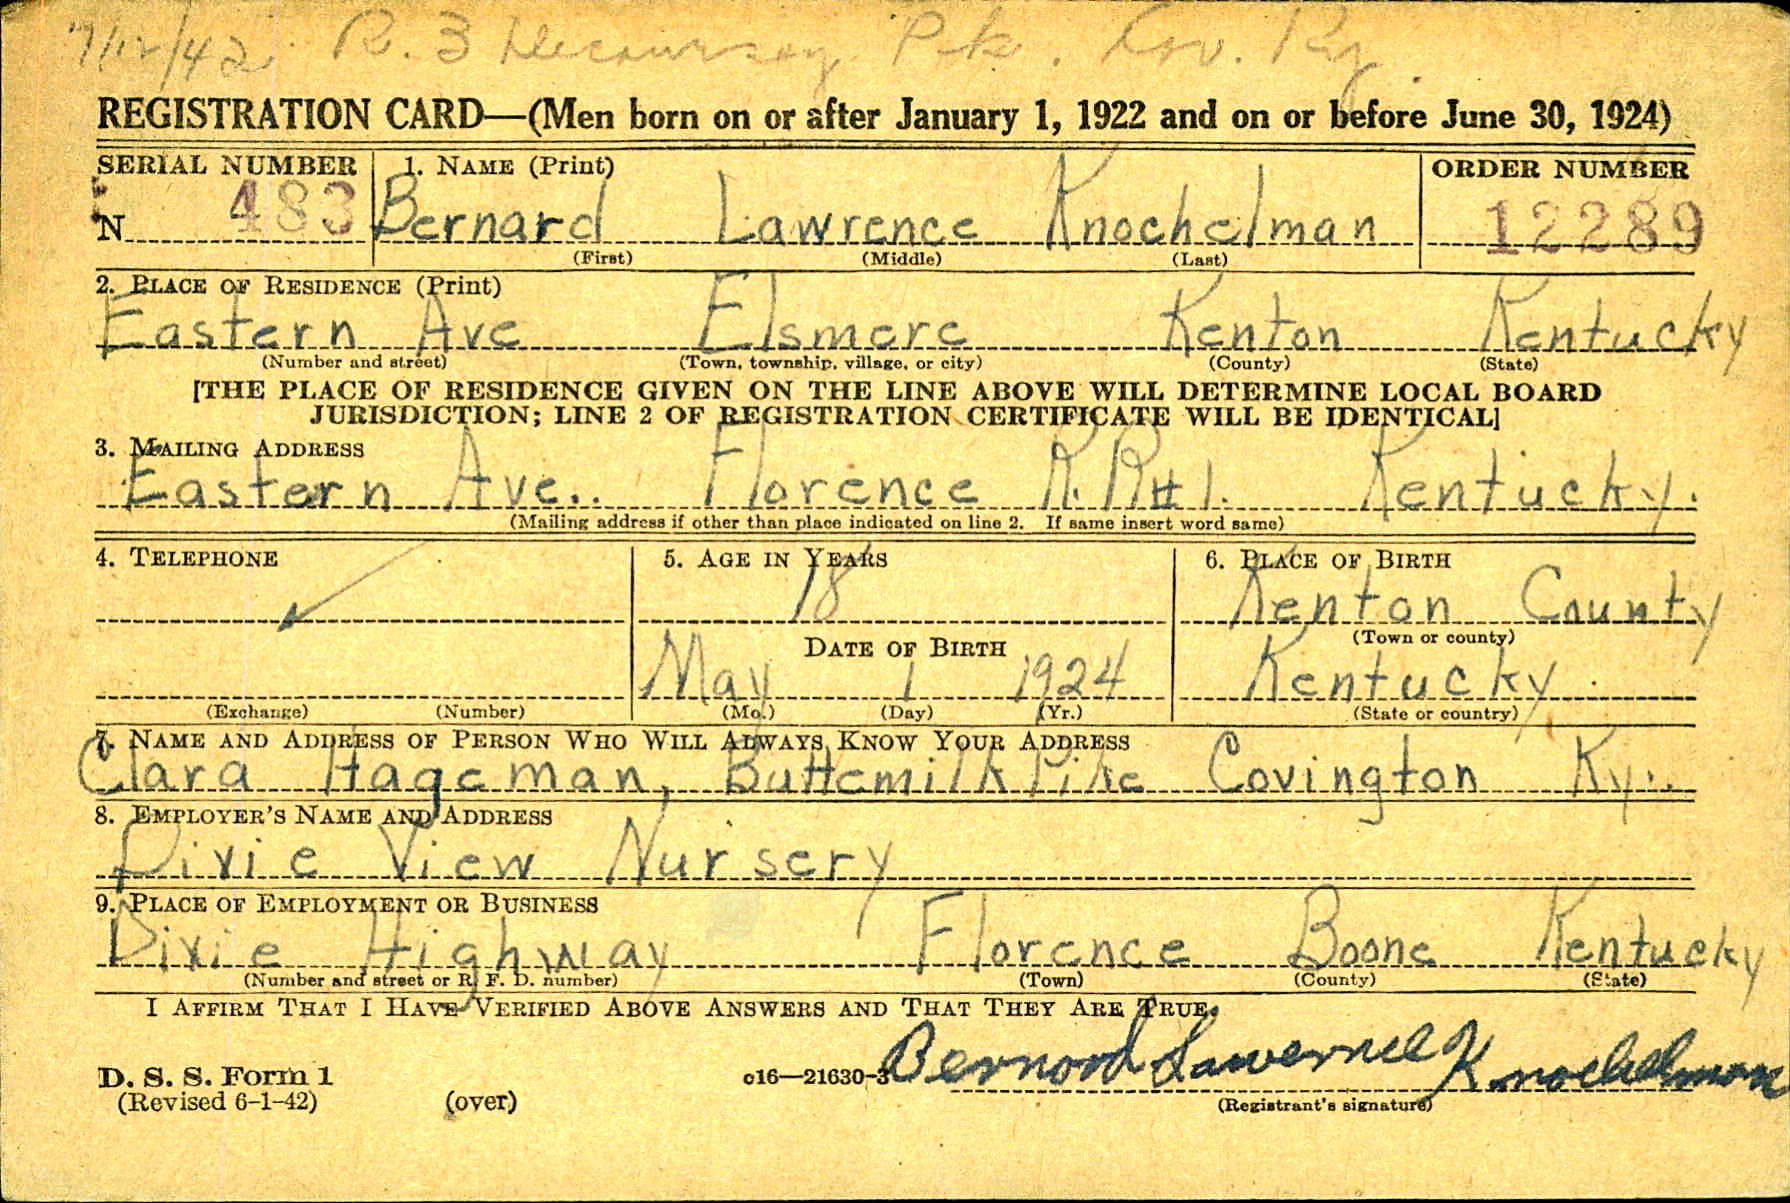 7/12/42. R. 3 Decoursey Pk. Cov. Ky.
REGISTRATION CARD—(Men born on or after January 1, 1922 and on or before June 30, 1924)
SERIAL NUMBER 1. NAME (Print) ORDER NUMBER
N 483 Bernard Lawrence Knochelman 12289
(First) (Middle) (Last)
2. PLACE OF RESIDENCE (Print)
Eastern Ave Elsmere Kenton Kentucky
(Number and street) (Town, township, village, or city) (County) (State)
[THE PLACE OF RESIDENCE GIVEN ON THE LINE ABOVE WILL DETERMINE LOCAL BOARD
JURISDICTION; LINE 2 OF REGISTRATION CERTIFICATE WILL BE IDENTICAL]
3. MAILING ADDRESS
Eastern Ave.. Florence R.R#1. Kentucky.
(Mailing address if other than place indicated on line 2. If same insert word same)
4. TELEPHONE 5. AGE IN YEARS 6. PLACE OF BIRTH
18 Kenton County
(Town or county)
DATE OF BIRTH
May 1 1924 Kentucky
(Exchange) (Number) (Mo.) (Day) (Yr.) (State or country)
7. NAME AND ADDRESS OF PERSON WHO WILL ALWAYS KNOW YOUR ADDRESS
Clara Hageman, Buttemilk Pike Covington Ky..
8. EMPLOYER'S NAME AND ADDRESS
Dixie View Nursery
9. PLACE OF EMPLOYMENT OR BUSINESS
Dixie Highway Florence Boone Kentucky
(Number and street or R. F. D. number) (Town) (County) (State)
I AFFIRM THAT I HAVE VERIFIED ABOVE ANSWERS AND THAT THEY ARE TRUE.
Bernard Lawrence Knochelman
D. S. S. Form 1 c16—21630-3
(Revised 6-1-42) (over) (Registrant's signature)